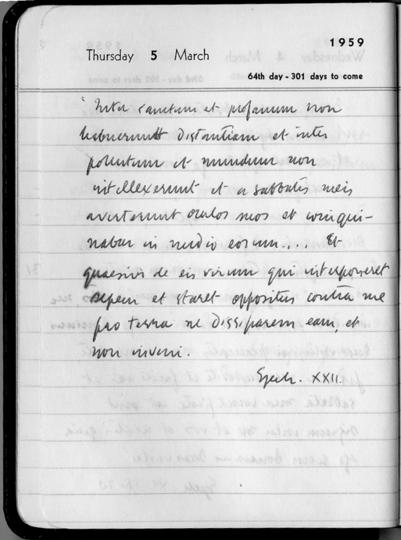 1959
Thursday 5 March
64th day - 301 days to come
"Inter sanctum et profanum non
habuerunt distantiam et inter
pollutum et mundum non
intellexerunt et a sabbatis meis
averterunt oculos suos et coinqui-
nabar in medio eorum.... Et
quaesivi de eis virum qui interponeret
sepem et staret oppositus contra me
pro terra ne dissiparem eam, et
non inveni.
Ezech. XXII.